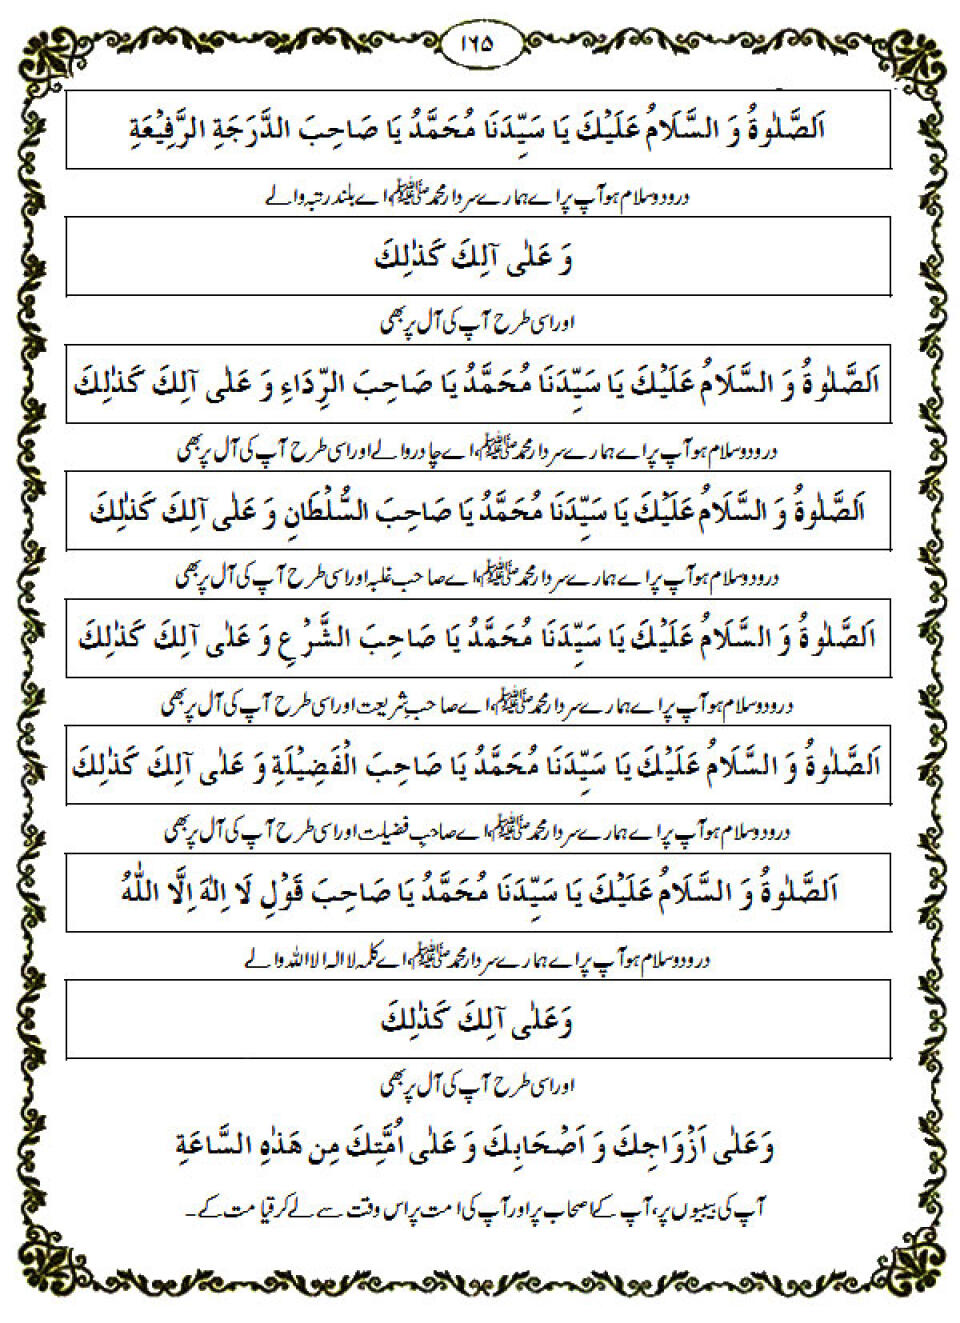 ۱۶۵
اَلصَّلٰوةُ وَ السَّلَامُ عَلَیْكَ یَا سَیِّدَنَا مُحَمَّدُ یَا صَاحِبَ الدَّرَجَةِ الرَّفِیْعَةِ
درود و سلام ہو آپ پر اے ہمارے سردار محمد ﷺ، اے بلند رتبہ والے
وَ عَلٰی آلِكَ كَذٰلِكَ
اور اسی طرح آپ کی آل پر بھی
اَلصَّلٰوةُ وَ السَّلَامُ عَلَیْكَ یَا سَیِّدَنَا مُحَمَّدُ یَا صَاحِبَ الرِّدَاءِ وَ عَلٰی آلِكَ كَذٰلِكَ
درود و سلام ہو آپ پر اے ہمارے سردار محمد ﷺ، اے چادر والے اور اسی طرح آپ کی آل پر بھی
اَلصَّلٰوةُ وَ السَّلَامُ عَلَیْكَ یَا سَیِّدَنَا مُحَمَّدُ یَا صَاحِبَ السُّلْطَانِ وَ عَلٰی آلِكَ كَذٰلِكَ
درود و سلام ہو آپ پر اے ہمارے سردار محمد ﷺ، اے صاحب غلبہ اور اسی طرح آپ کی آل پر بھی
اَلصَّلٰوةُ وَ السَّلَامُ عَلَیْكَ یَا سَیِّدَنَا مُحَمَّدُ یَا صَاحِبَ الشَّرْعِ وَ عَلٰی آلِكَ كَذٰلِكَ
درود و سلام ہو آپ پر اے ہمارے سردار محمد ﷺ، اے صاحبِ شریعت اور اسی طرح آپ کی آل پر بھی
اَلصَّلٰوةُ وَ السَّلَامُ عَلَیْكَ یَا سَیِّدَنَا مُحَمَّدُ یَا صَاحِبَ الْفَضِیْلَةِ وَ عَلٰی آلِكَ كَذٰلِكَ
درود و سلام ہو آپ پر اے ہمارے سردار محمد ﷺ، اے صاحبِ فضیلت اور اسی طرح آپ کی آل پر بھی
اَلصَّلٰوةُ وَ السَّلَامُ عَلَیْكَ یَا سَیِّدَنَا مُحَمَّدُ یَا صَاحِبَ قَوْلِ لَا اِلٰهَ اِلَّا اللّٰهُ
درود و سلام ہو آپ پر اے ہمارے سردار محمد ﷺ، اے کلمہ لا الہ الا اللہ والے
وَعَلٰی آلِكَ كَذٰلِكَ
اور اسی طرح آپ کی آل پر بھی
وَعَلٰی اَزْوَاجِكَ وَ اَصْحَابِكَ وَ عَلٰی اُمَّتِكَ مِن هَذٰهِ السَّاعَةِ
آپ کی بیبیوں پر، آپ کے اصحاب پر اور آپ کی امت پر اس وقت سے لے کر قیامت کے۔